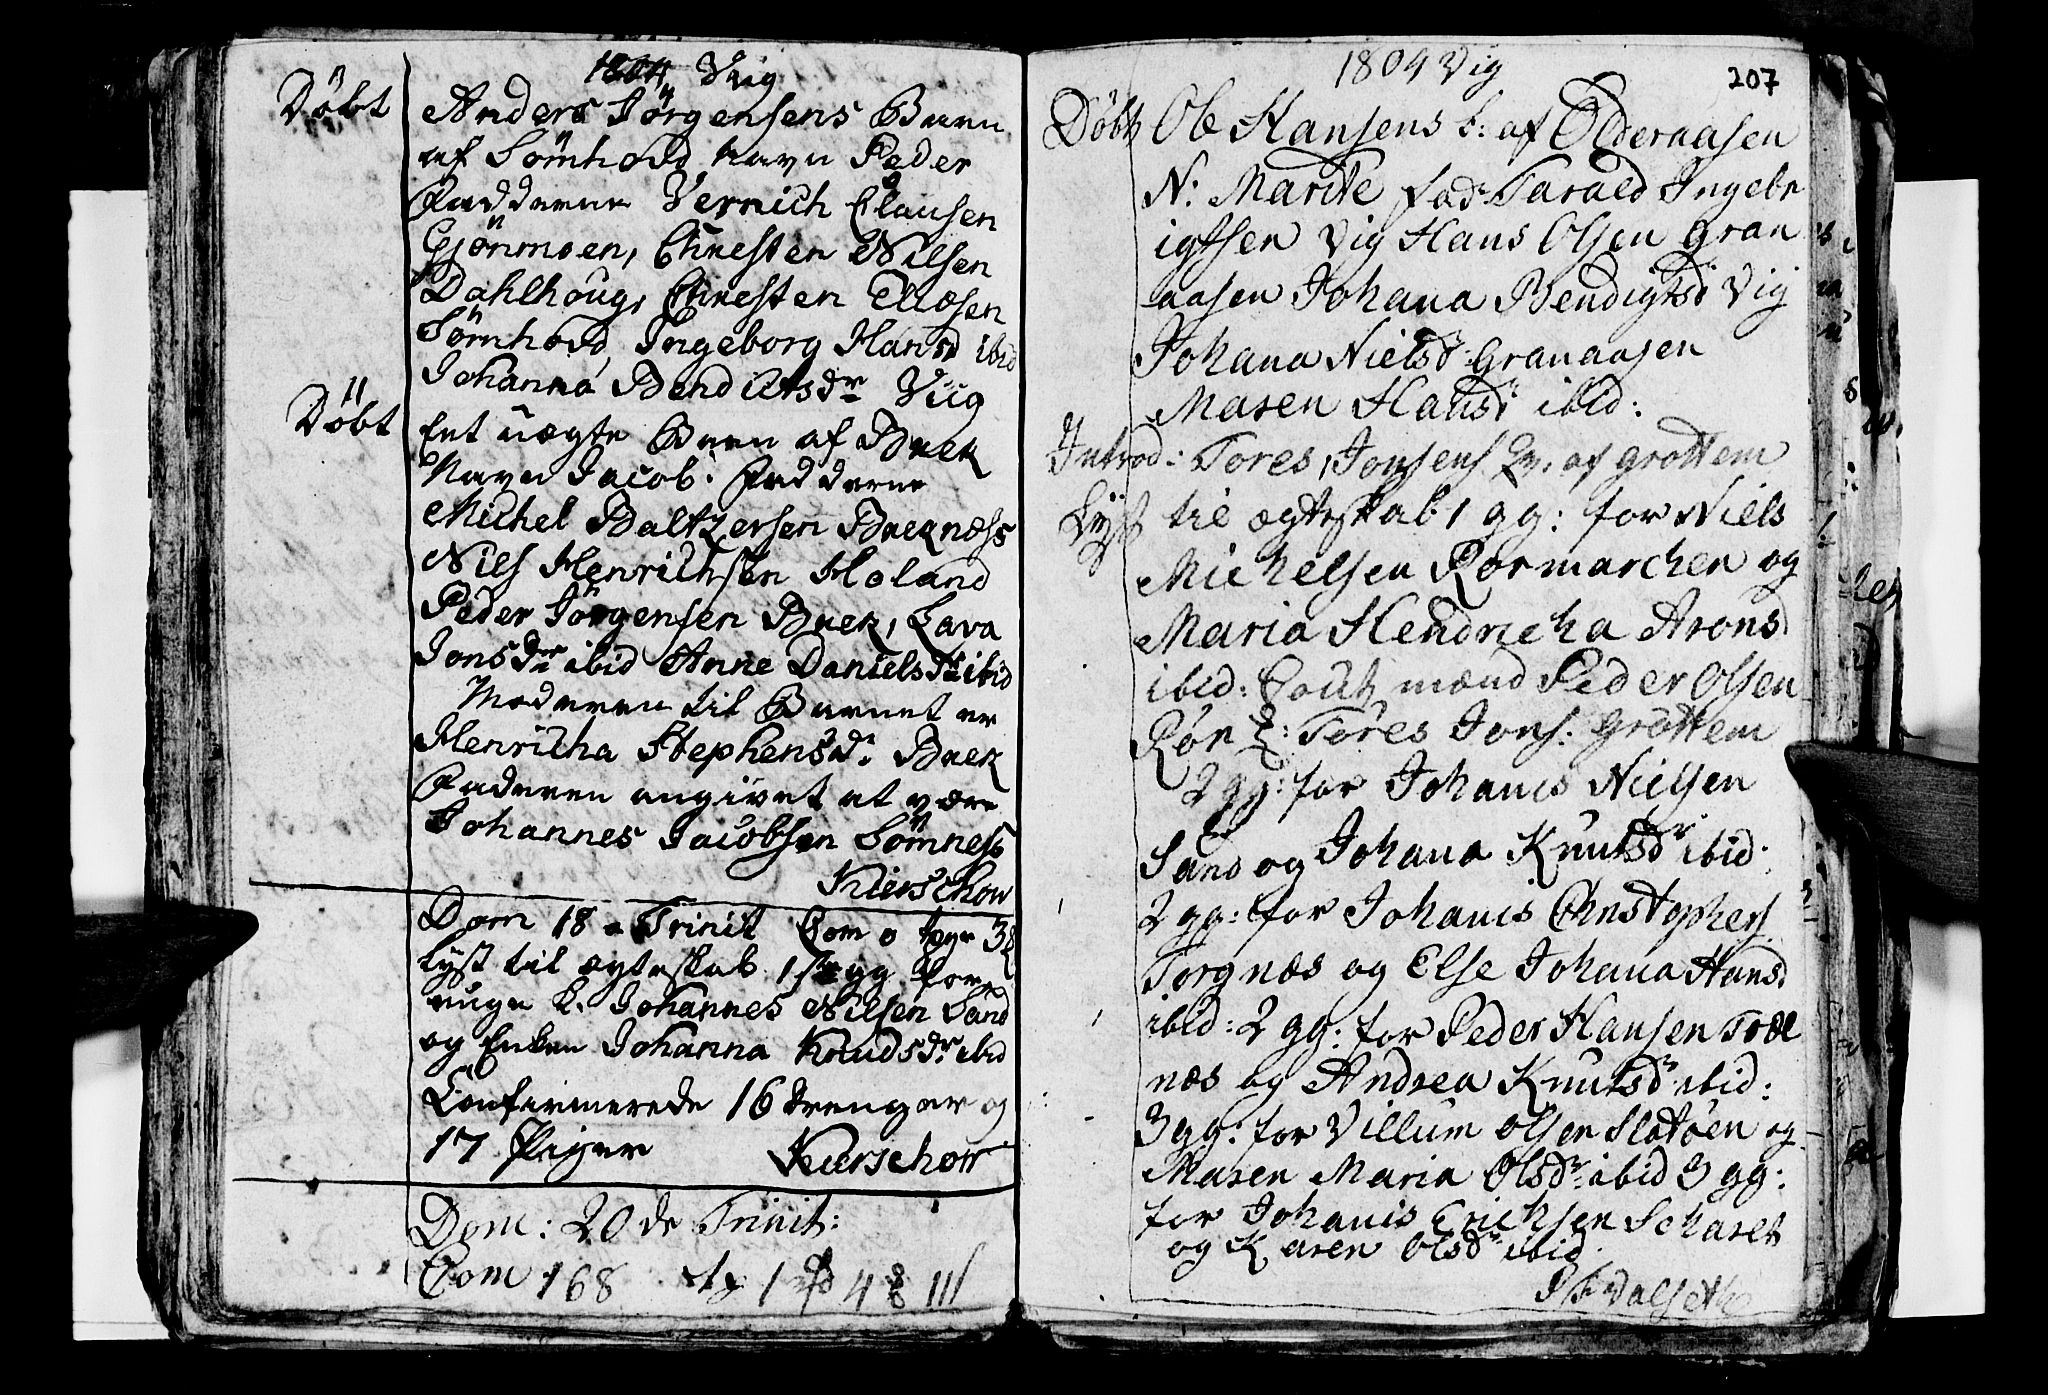 1804 Viig
Döbt Anders Jörgensens Barn
af Sömhovd, navn Peder
Fadderne Vernich Clausen
Gjönmoen, Christen Nilsen
Dahlhoug, Christen Eliæsen
Sömhovd, Ingeborg Hansd ibid
Johanna Bendictsdr Viig
Döbt Eet uægte Barn af Bræk
Navn Jacob. Fadderne
Michel Baltzersen Bræknæss
Nils Henrichsen Holand
Peder Jörgensen Bræk, Lava
Jonsdr ibid Anne Danielsdr ibid
Moderen til Barnet er
Henricha Stephensd. Bræk
Faderen angivet at være
Johannes Jacobsen Sömness
Kierschow
Dom 18 a Trinit Com 0
lyst til ægteskab 1ste gg for
unge k. Johannes Nilsen Sand
og Enken Johanna Knudsdr ibid
Confirmerede 16 drenger og
17 Piger Kierschow
Dom: 20de Trinit:
Com 168
1804 Vig
207
Döbt Ole Hansens b: af Olderaasen
N: Marite fad: Tarald Ingebr
igtsen Vig Hans Olsen Gran
aasen Johana Bendigtsd Vig
Johana Nielsd: Granaasen
Maren Hansd: ibid:
Introd: Tores Jonsens Qv. af Grottem
Lyst til ægteskab 1 gg: for Niels
Michelsen Rørmarchen og
Maria Hendricha Aronsd
ibid: Cout mænd Peder Olsen
Rör &: Töres Jons: Gröttem
2 gg: for Johanis Nielsen
Sand og Johana Knutsdr ibid:
2 gg: for Johanis Christophers
Torgnæs og Else Johana Hansd
ibid: 2 gg: for Peder Hansen Træl
næs og Andrea Knutsdr ibid:
3 gg: for Villum Olsen Slotöen og
Maren Maria Olsdr ibid 3 gg:
for Johanis Erichsen Scharet
og Karen Olsdr ibid.
Dalsethe